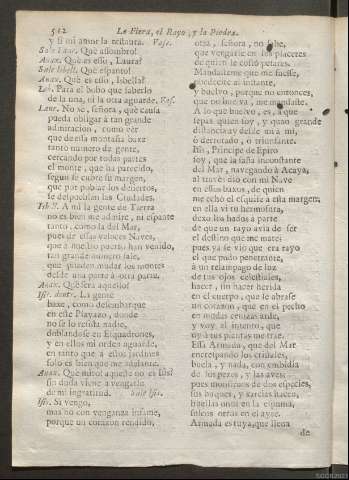 512 La Fiera, el Rayo, y la Piedra.
y si mi amor la restaura. Vase.
Sale Laur. Què assombro!
Anax. Què es esso, Laura?
Sale Isbell. Què espanto!
Anax. Què es esso, Isbella?
Leb. Para el bobo que saberlo
de la una, ni la otra aguarde, Vas.
Laur. No sè, señora, què causa
pueda obligar à tan grande
admiracion, como vèr
que de essa montaña baxe
tanto numero de gente,
cercando por todas partes
el monte, que ha parecido,
segun se cubre su margen,
que por poblar los desiertos,
se despueblan las Ciudades.
Isb. A mi la gente de Tierra
no es bien me admire, ni espante
tanto, como la del Mar,
pues de essas veloces Naves,
que à nuestro puerto han venido,
tan grande numero sale,
que pueden mudar los montes
desde una parte à otra parte.
Anax. Què serà aquello?
Ifis. dentr. La gente
baxe, como desembarque
en este Playazo, donde
no se lo resista nadie,
doblandose en Esquadrones,
y en ellos mi orden aguarde,
en tanto que à estos jardines
solo es bien que me adelante.
Anax. Què miro! aquèl no es Ifis!
sin duda viene à vengarse
de mi ingratitud. Sale Ifis.
Ifis. Si vengo,
mas no con venganza infame,
porque un corazon rendido,
otra, señora, no sabe,
que vengarse en los placeres
de quien le costò pesares.
Mandasteme que me fuesse,
obedecite al instante,
y buelvo, porque no entonces,
que no buelva, me mandaste.
A lo que buelvo, es, à que
sepas quien soy, y quan grande
distancia vy desde mi à mi,
ò derrotado, ò triunfante.
Ifis, Principe de Epiro
soy, que la saña inconstante
del Mar, navegando à Acaya,
al travès diò con mi Nave
en essos baxos, de quien
me echò el esquife à esta margen;
en ella vì tu hermosura,
dexo los hados à parte
de que un rayo avia de ser
el destino que me mate;
pues ya se viò que era rayo
el que pudo penetrante,
à un relampago de luz
de tus ojos celestiales,
hacer, sin hacer herida
en el cuerpo, que se abrase
un corazon, que en el pecho
en mudas cenizas arde,
y voy al intento, que
oy à tus plantas me trae.
Essa Armada, que del Mar
encrespando los cristales,
buela, y nada, con embidia
de los peces, y las aves,
pues monstruos de dos especies,
sus buques, y xarcias hacen,
huellas unos en la espuma,
sulcos otros en el ayre.
Armada es tuya, que llena
de